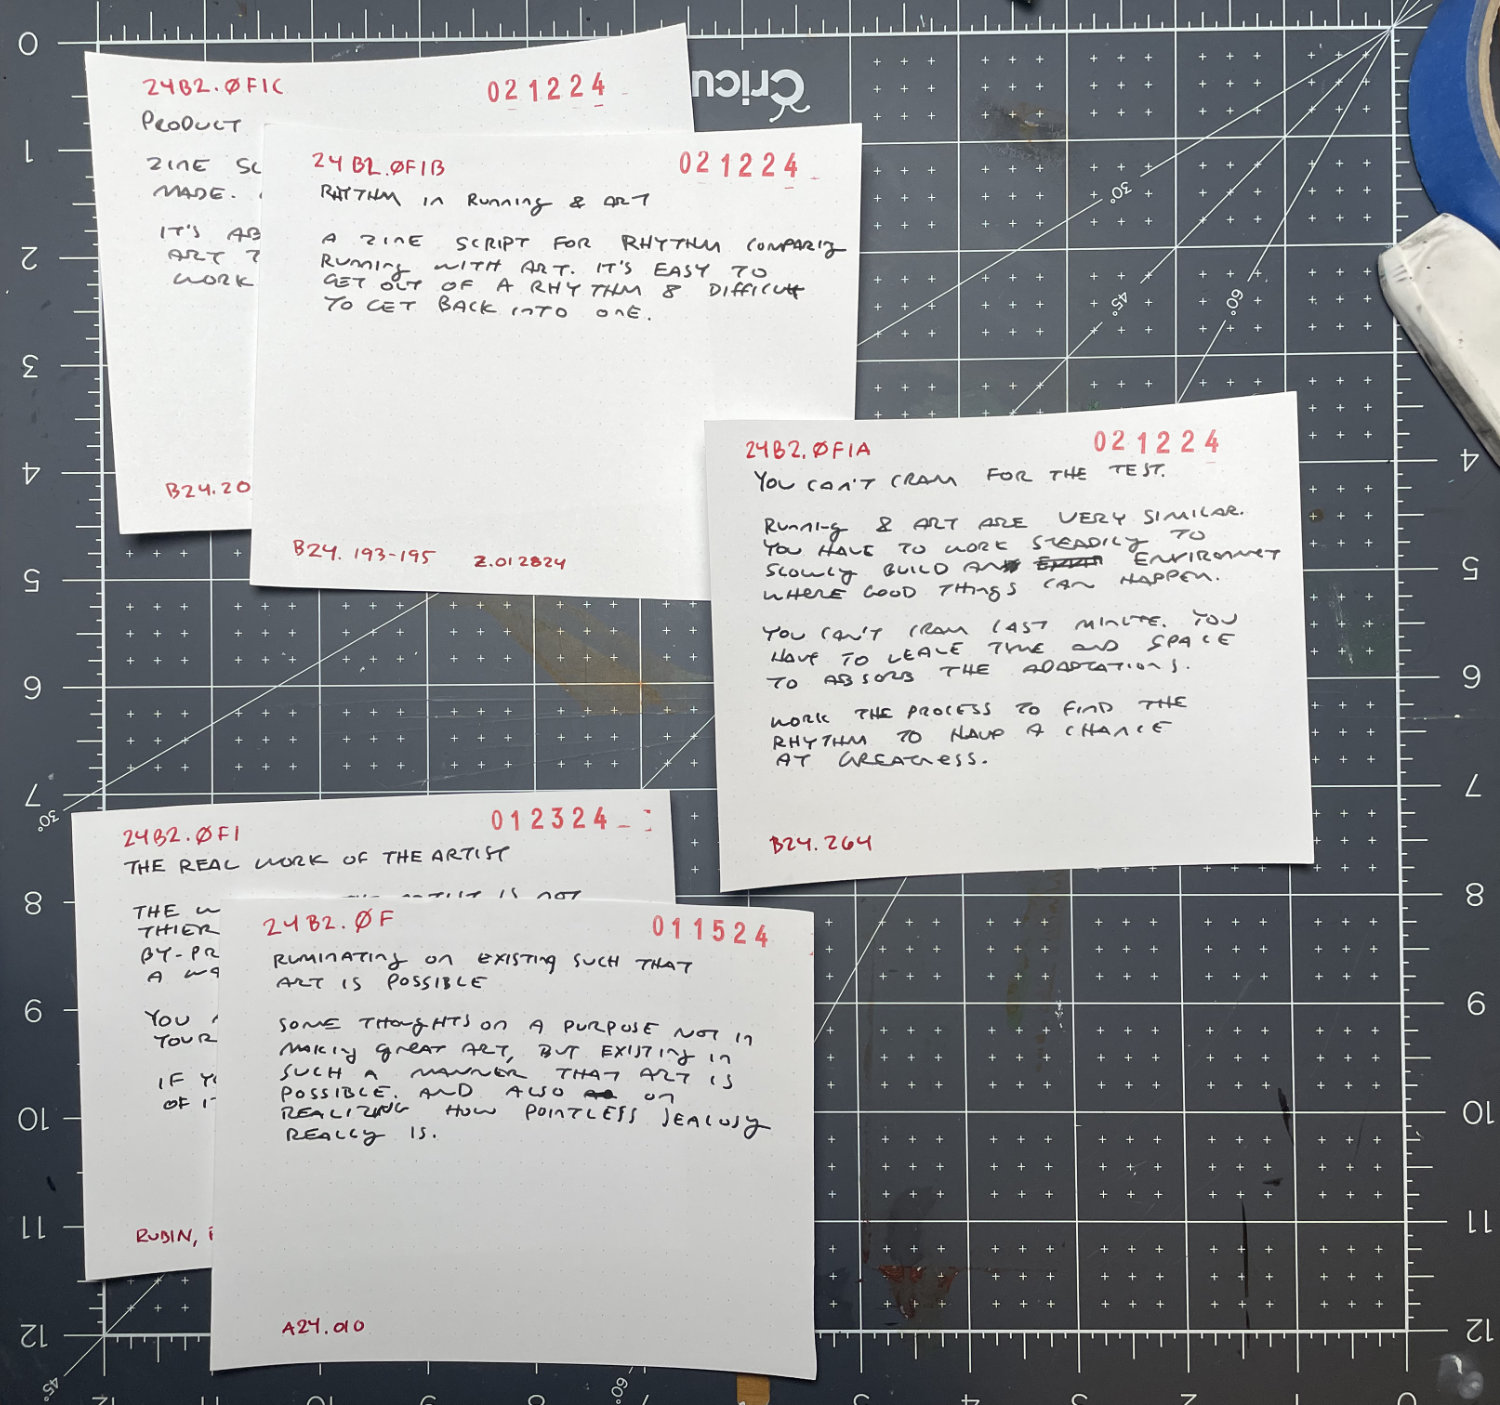 24B2.ØF1C 021224
PRODUCT
ZINE SC
MADE.
IT'S AB
ART T
WORK
B24.20
24B2.ØF1B 021224
RHYTHM IN RUNNING & ART
A ZINE SCRIPT FOR RHYTHM COMPARING
RUNNING WITH ART. IT'S EASY TO
GET OUT OF A RHYTHM & DIFFICULT
TO GET BACK INTO ONE.
B24.193-195 Z.012824
Cricu
24B2.ØF1A 021224
YOU CAN'T CRAM FOR THE TEST.
RUNNING & ART ARE VERY SIMILAR.
YOU HAVE TO WORK STEADILY TO
SLOWLY BUILD AN ENVIRONMET
WHERE GOOD THINGS CAN HAPPEN.
YOU CAN'T CRAM LAST MINUTE. YOU
HAVE TO LEAVE TIME AND SPACE
TO ABSORB THE ADAPTATIONS.
WORK THE PROCESS TO FIND THE
RHYTHM TO HAVE A CHANCE
AT GREATNESS.
B24.264
24B2.ØF1 012324
THE REAL WORK OF THE ARTIST
THE W ARTIST IS NOT
THIER
BY-PR
A WA
YOU
YOUR
IF YO
OF IT
RUBIN,
24B2.ØF 011524
RUMINATING ON EXISTING SUCH THAT
ART IS POSSIBLE
SOME THOUGHTS ON A PURPOSE NOT IN
MAKING GREAT ART, BUT EXISTING IN
SUCH A MANNER THAT ART IS
POSSIBLE. AND ALSO ON
REALIZING HOW POINTLESS JEALOUSY
REALLY IS.
A24.010
0
1
2
3
4
5
6
7
8
9
10
11
12
4
5
6
7
8
9
10
11
12
30°
45°
60°
30°
45°
60°
12
10
9
8
7
5
4
3
2
1
0